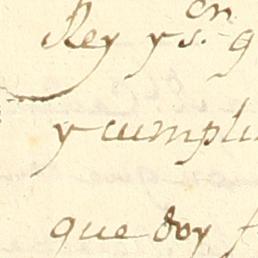 Rey y s.on g
y cumpli
que doy f